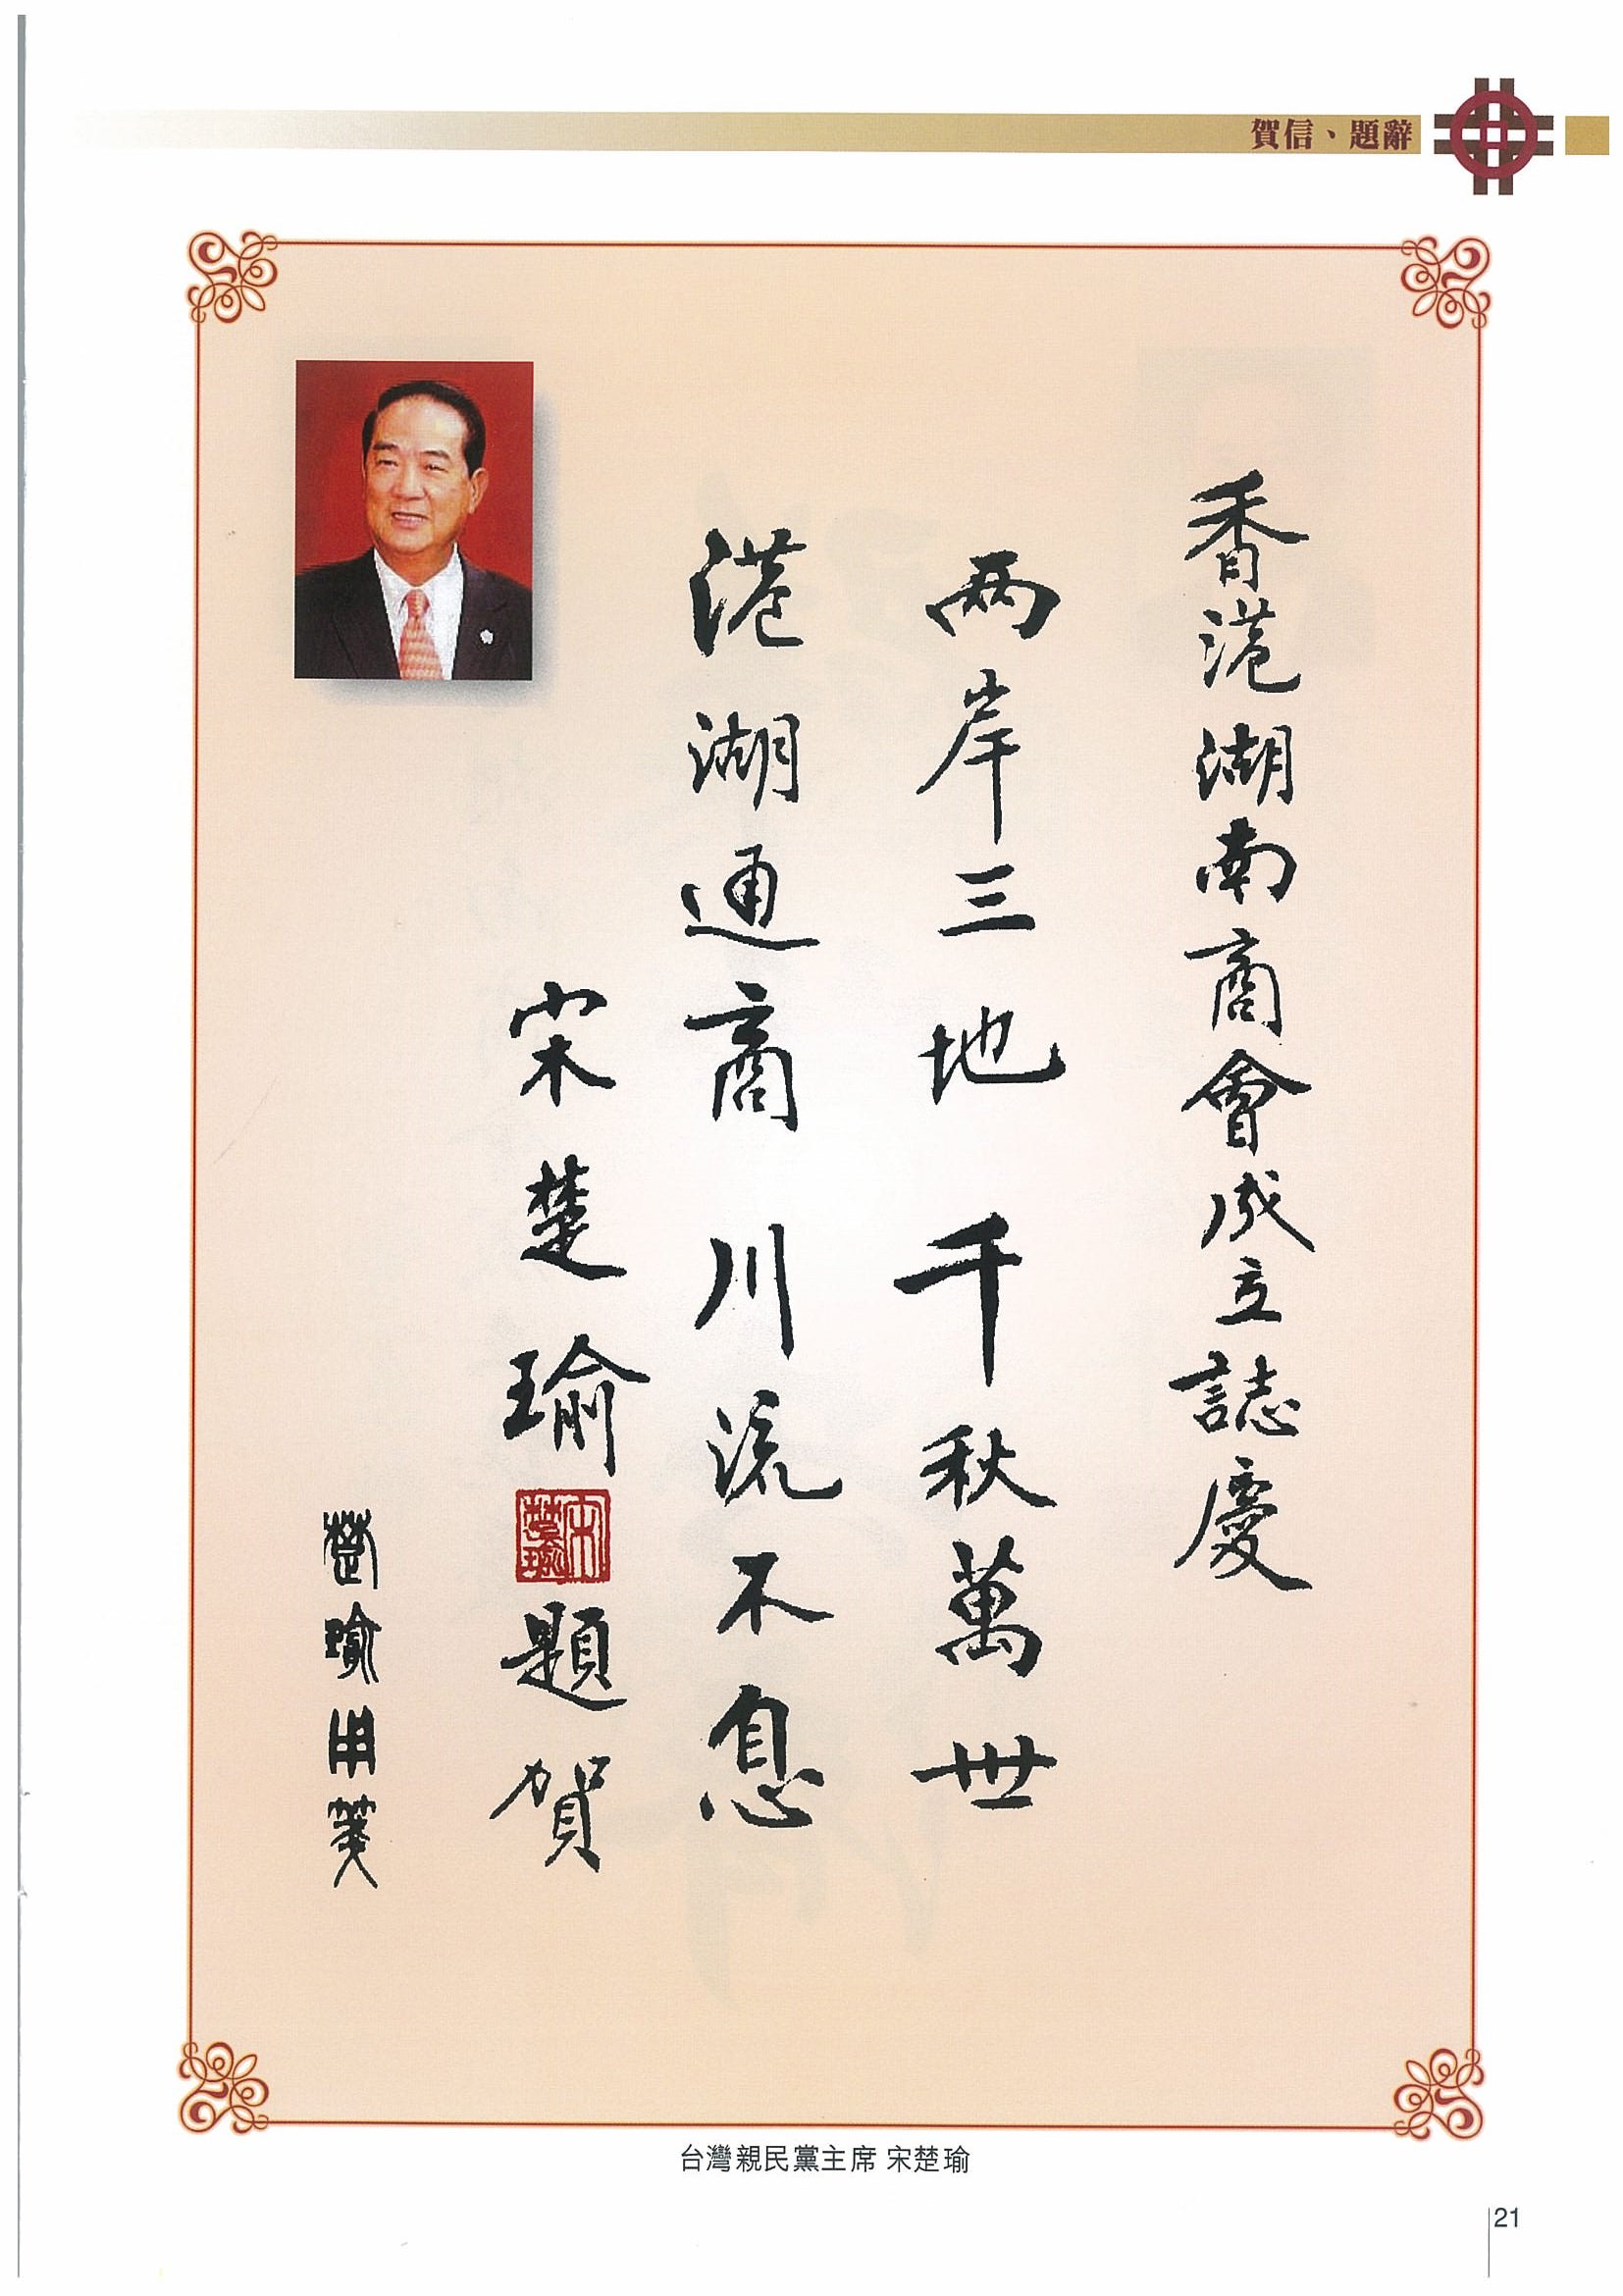 賀信、題辭
香港湖南商會成立誌慶
兩岸三地 千秋萬世
港湖通商 川流不息
宋楚瑜
宋楚瑜
題賀
楚瑜用箋
台灣親民黨主席 宋楚瑜
21